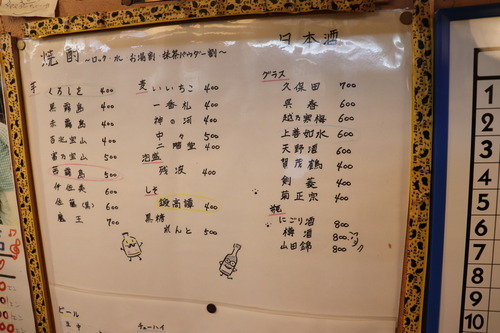 焼酎 〜ロック・水 お湯割 抹茶パウダー割〜
芋
くろしを 400
黒霧島 400
赤霧島 400
吉兆宝山 400
富乃宝山 500
茜霧島 500
伊佐美 600
佐藤(黒) 600
魔王 700
麦
いいちこ 400
一番札 400
神の河 400
中々 500
二階堂 400
泡盛
残波 400
しそ
鍛高譚 400
黒糖
れんと 500
日本酒
グラス
久保田 700
呉春 600
越乃寒梅 600
上善如水 600
天野酒 600
賀茂鶴 400
剣菱 400
菊正宗 400
瓶
にごり酒 800
樽酒 800
山田錦 800
ビール
生中
チューハイ
1
2
3
4
5
6
7
8
9
10